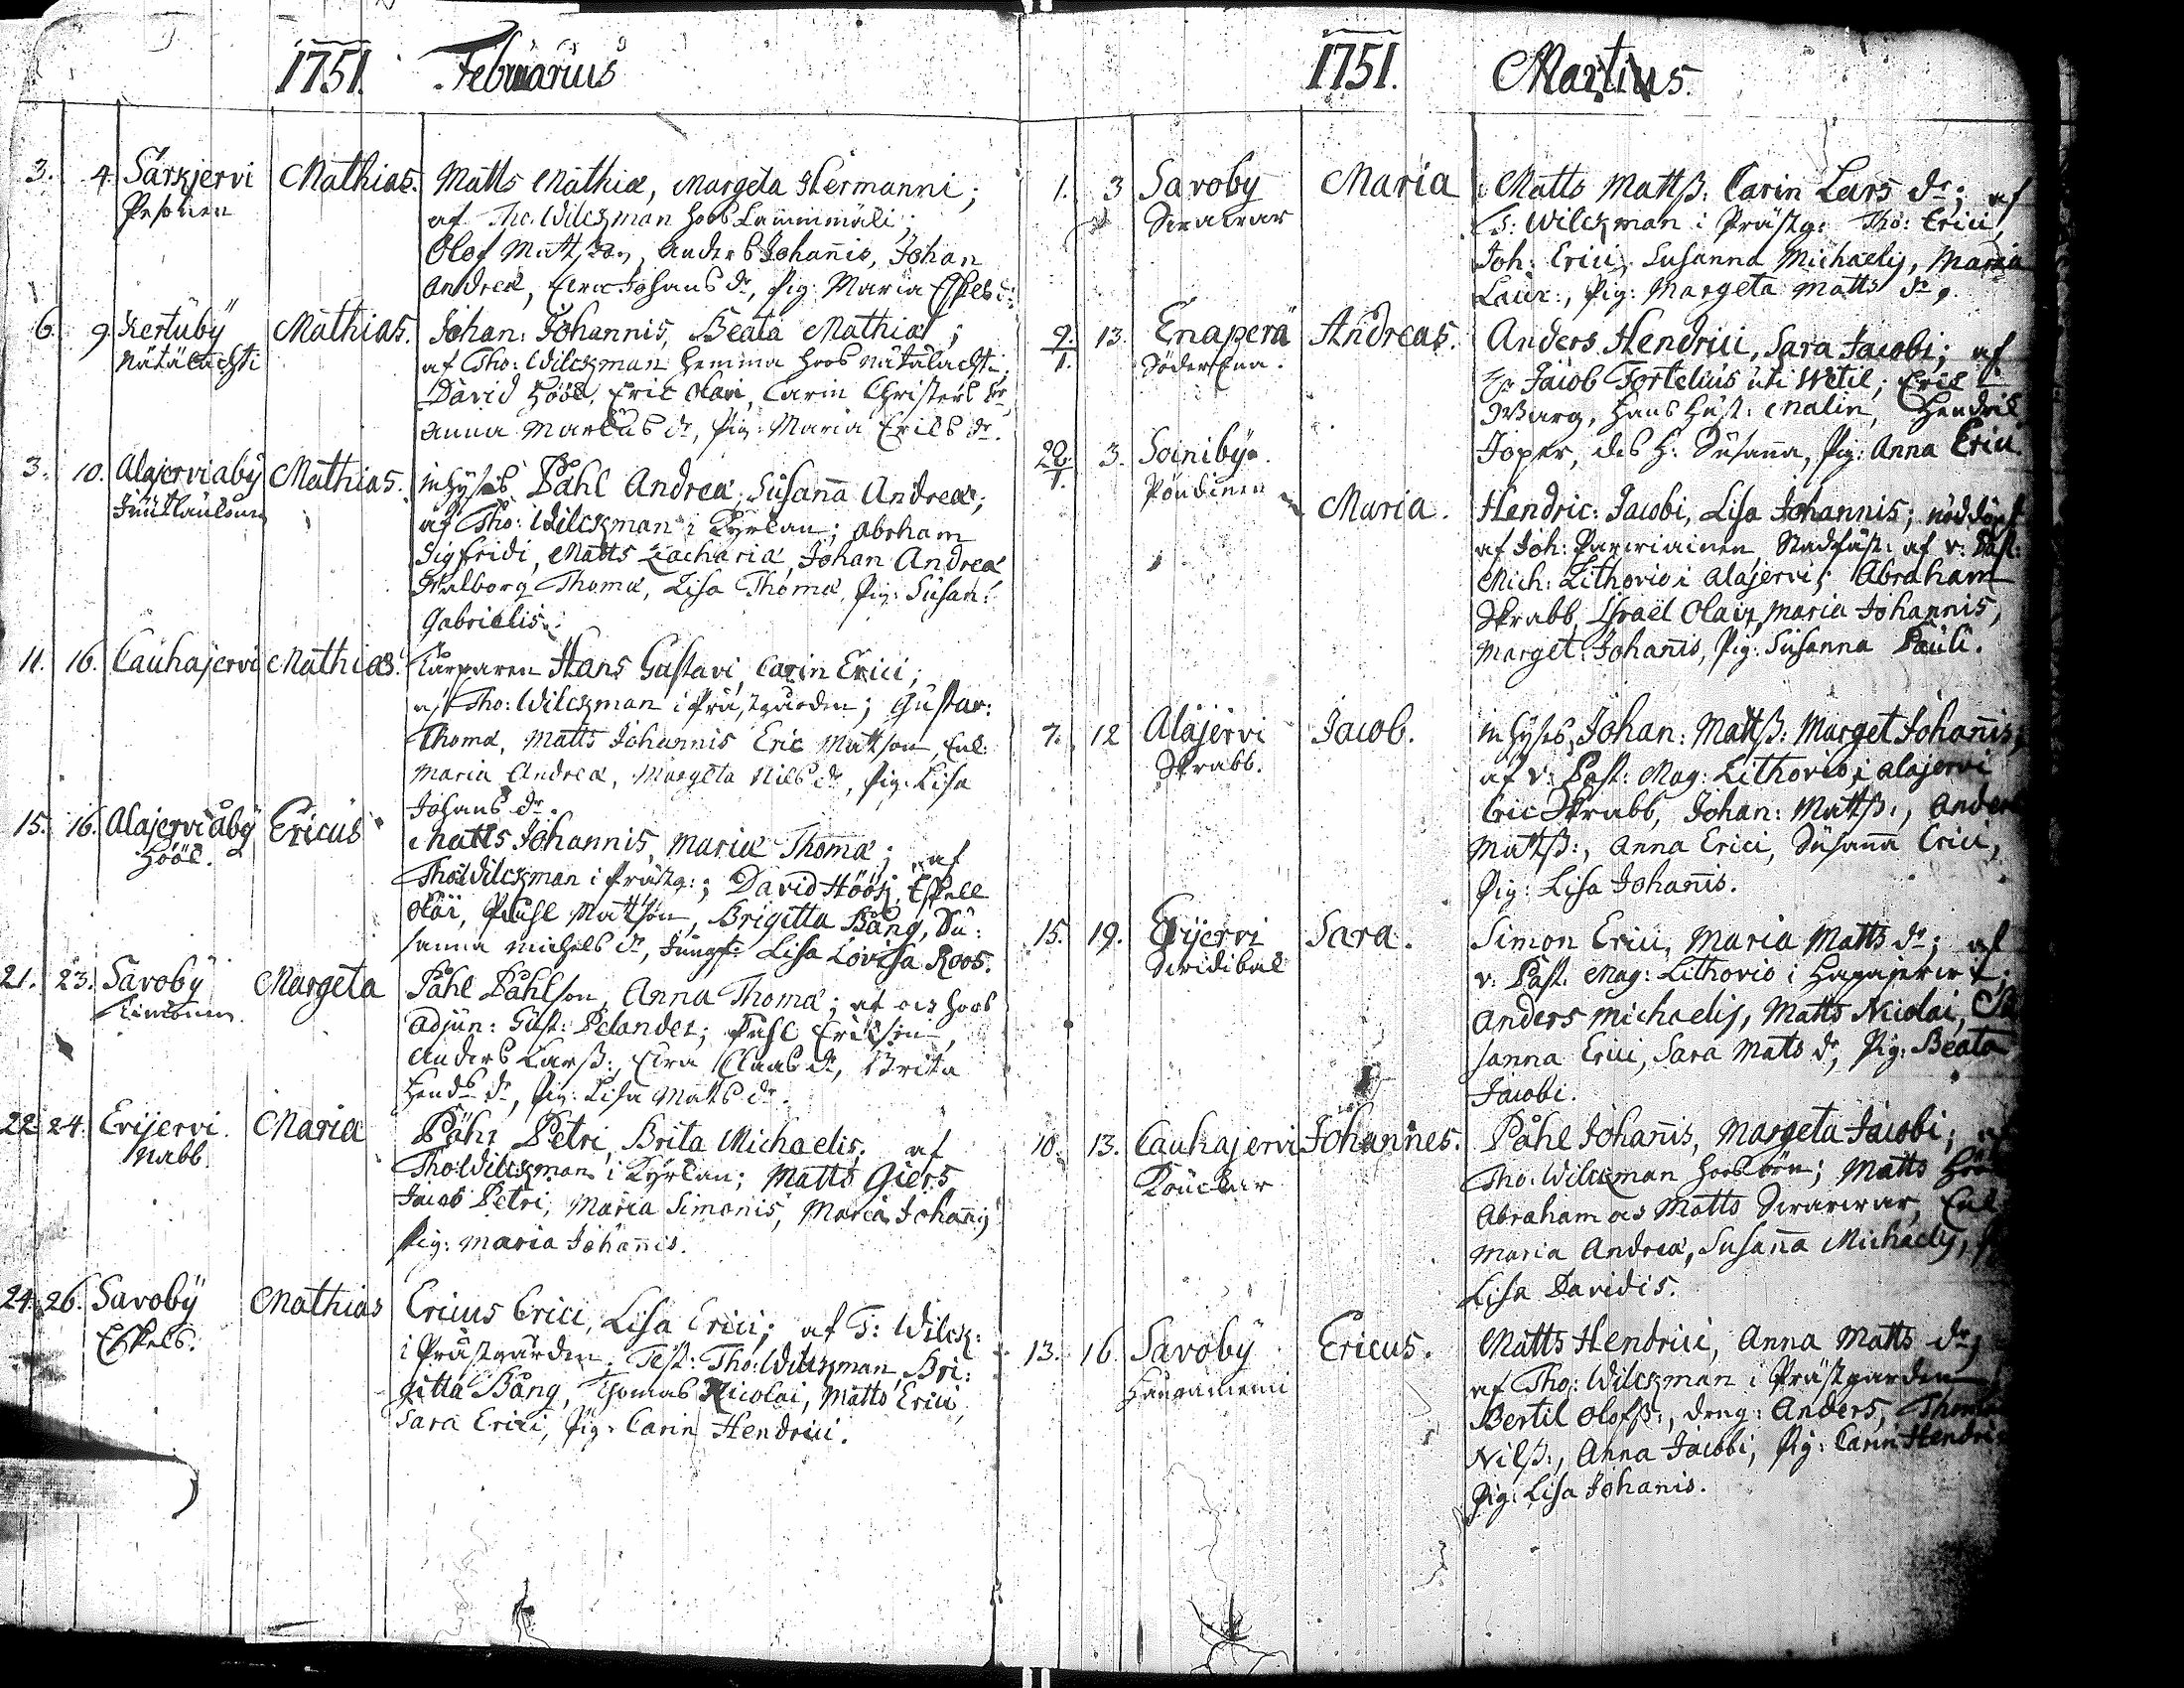 1751. Februarius
3. 4. Särkjervi Mathias. Matts Mathiæ, Margeta Hermanni;
Pesonen af Tho. Wilckman hos Lamminmäki;
Olof Mattson, Anders Johannis, Johan
Andreæ, Elra Johans dr, Pig: Maria Eskels dr.
6. 9. Kertuby Mathias. Johan: Johannis, Beata Mathiæ;
Nätälachti af Tho: Wilckman hemma hos Nätälachti;
David Höök, Eric Olavi, Carin Christers dr,
Anna Markus dr, Pig: Maria Erics dr.
3. 10. Alajerviaby Mathias. inhyses Påhl Andreæ, Susanna Andreæ;
af Tho: Wilckman i Kyrkan; Abraham
Sigfridi, Matts Zachariæ, Johan Andreæ
Walborg Thomæ, Lisa Thomæ, Pig: Susan:
Gabrielis.
11. 16. Cauhajervi Mathias. Torparen Hans Gustavi, Carin Erici;
af Tho: Wilckman i Prästgården; Gustav:
Thomæ, Matts Johannis Eric Matson, Enk:
Maria Andreæ, Margeta Nils dr, Pig: Lisa
Johans dr.
15. 16. Alajerviåby Ericus Matts Johannis, Maria Thomæ; af
Höök. Tho Wilckman i Prästg:; David Höök, Eskell
Olai, Påhl Matson, Brigitta Bång, Su:
sanna Michels dr, Jungf: Lisa Lovisa Roos.
21. 23. Savoby Margeta Påhl Påhlson, Anna Thomæ; af och hos
Adjun: Gust: Pelander; Påhl Ericson,
Anders Larß:, Elra Claas dr, Brita
Hend dr, Pig: Lisa Mats dr.
22. 24. Evijervi. Maria Påhr Petri, Brita Michaelis; af
Nabb. Tho Wilckman i Kyrkan; Matts Giers
Jacob Petri, Maria Simonis, Maria Johannis
Pig: Maria Johannis.
24. 26. Savoby Mathias Ericus Erici, Lisa Erici; af T: Wilck:
Eskels. i Prästgården. Test: Tho: Wilckman, Bri:
gitta Bång, Thomas Nicolai, Matts Erici,
Sara Erici, Pig: Carin Hendrici.
1751. Martius.
1. 3 Savoby Maria Matts Mattß: Carin Lars dr; af
T: Wilckman i Prästg: Tho: Erici,
Joh: Erici, Susanna Michaelis, Maria
Laur:, Pig: Margeta Matts dr.
9./1. 13. Enaperä Andreas. Anders Hendrici, Sara Jacobi; af
Söder Ena. Jacob Fortelius uti Wetil; Eric
Warg, hans hust: Malin, Hendric
Joper, des H: Susanna, Pig: Anna Erici.
28./1. 3. Soiniby.
Maria. Hendric: Jacobi, Lisa Johannis; nöddöpt
af Joh: Stadfäst: af v: Past:
Mich: Lithovio i Alajervi; Abraham
Skrabb, Israel Olai, Maria Johannis,
Marget: Johannis, Pig: Susanna Pauli.
7. 12 Alajervi Jacob. inhyses Johan: Mattß: Marget Johannis;
Skrabb. af v: Past: Mag: Lithovio i Alajervi
Eric Skrabb, Johan: Mattß:, Anders
Mattß:, Anna Erici, Susanna Erici,
Pig: Lisa Johannis.
15. 19. Evijervi Sara. Simon Erici, Maria Matts dr; af
v: Past. Mag: Lithovio i
Anders Michaelis, Matts Nicolai, Su
sanna Erici, Sara Mats dr, Pig: Beata
Jacobi.
10. 13. Cauhajervi Johannes. Påhl Johannis, Margeta Jacobi; af
Tho. Wilckman hos Matts
Abraham och Matts Enk
Maria Andreæ, Susanna Michaelis,
Lisa Davidis.
13. 16 Savoby Ericus. Matts Hendrici, Anna Matts dr;
af Tho: Wilckman i Prästgården
Bertil Olofß:, dreng: Anders, Thomas
Nilß:, Anna Jacobi, Pig: Carin Hendric
Pig: Lisa Johanis.